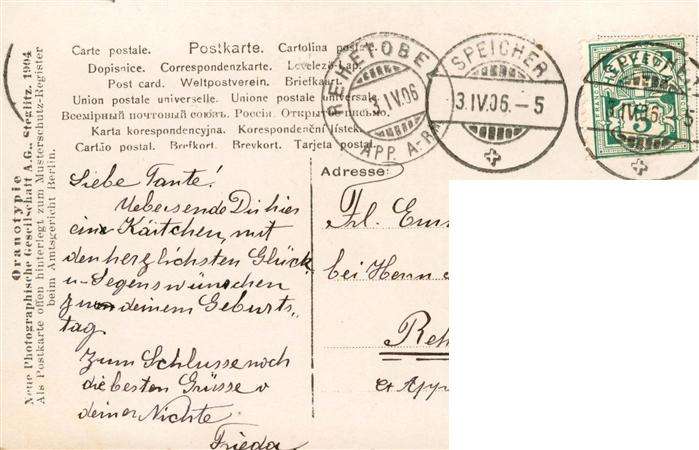 Carte postale. Postkarte. Cartolina postale.
Dopisnice. Correspondenzkarte. Levelező-Lap.
Post card. Weltpostverein. Briefkaart.
Union postale universelle. Unione postale universale
Всемірный почтовый союзъ. Россія. Открытое письмо.
Karta korespondencyjna. Korespondenční lístek.
Cartão postal. Brefkort. Brevkort. Tarjeta postal.
REHETOBEL
3.IV.06
APP. A-RH
SPEICHER
3.IV.06.-5
SPEICHER
IV.06.-5
5
Oranotypie
Neue Photographische Gesellschaft A.G., Steglitz. 1904
Als Postkarte offen hinterlegt zum Musterschutz-Register
beim Amtsgericht Berlin.
Liebe Tante!
Uebersende Dir hier
ein Kärtchen, mit
den herzlichsten Glück
u- Segenswünschen
zu deinem Geburts-
tag.
Zum Schlusse noch
die besten Grüsse v
deiner Nichte
Frieda
Adresse:
Frl.
bei
Reh